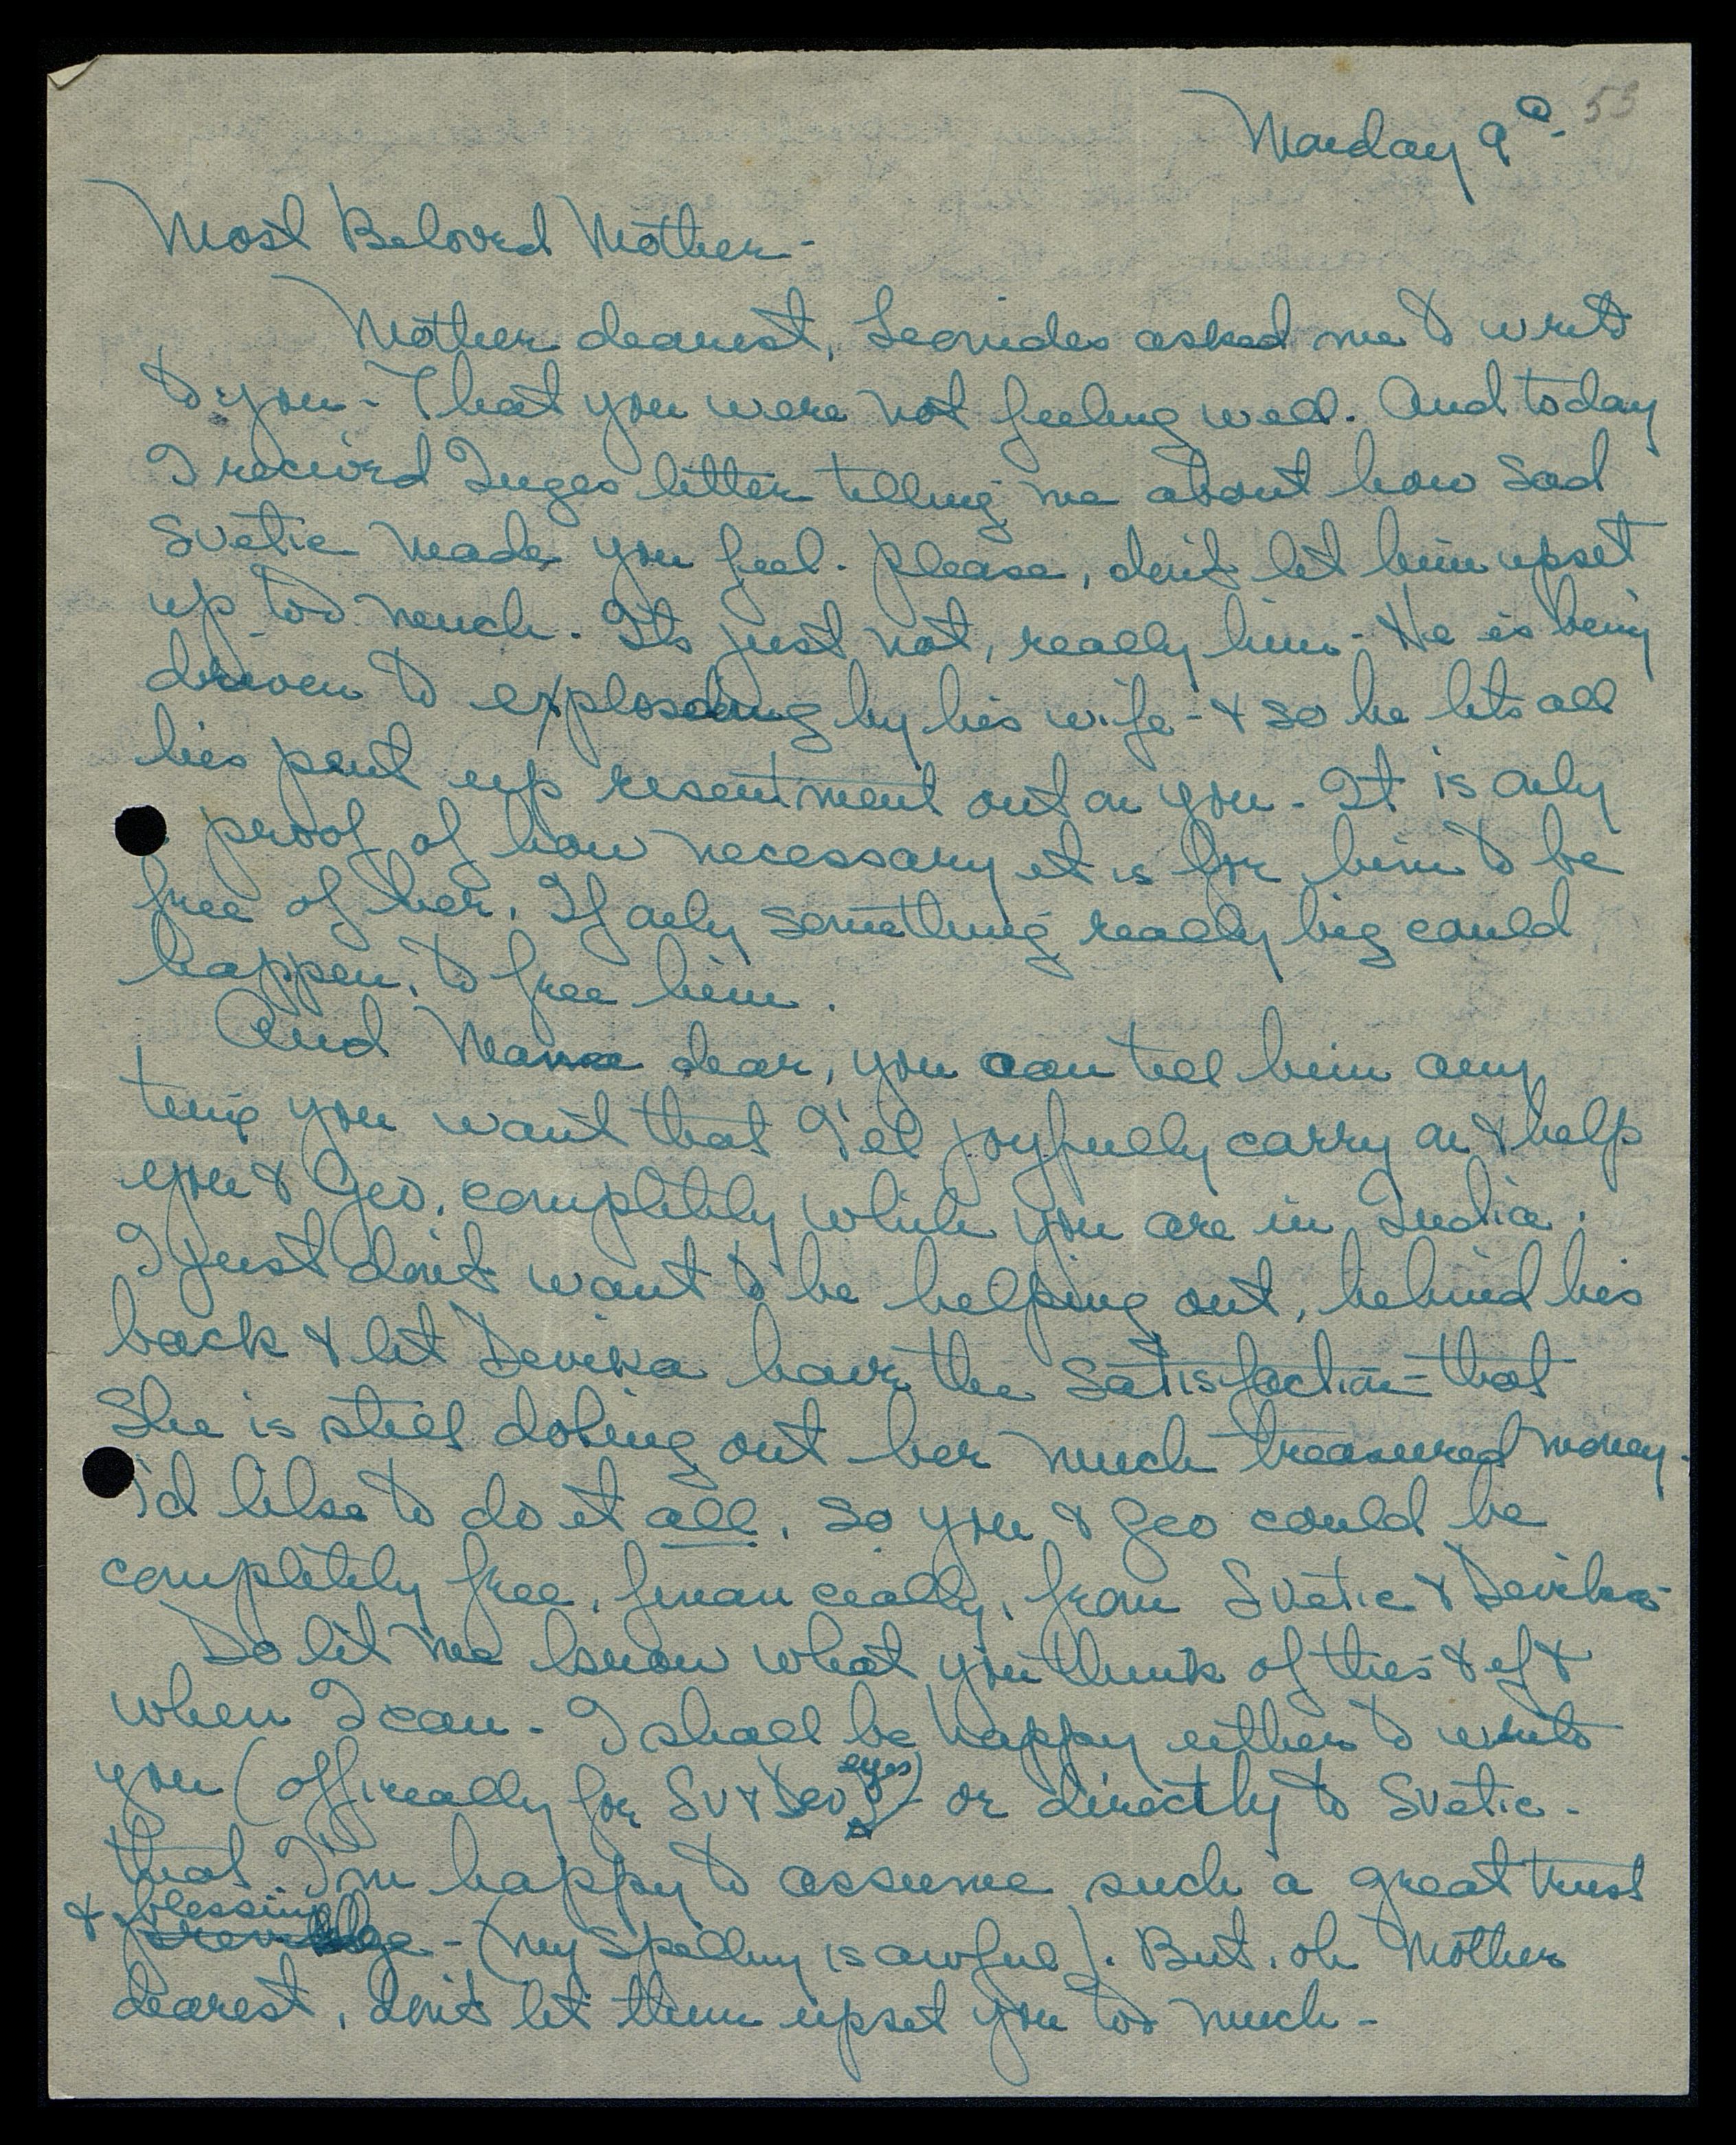 53
Monday 9th
Most Beloved Mother -
Mother dearest, Leonides asked me to write
to you - That you were not feeling well. And today
I received Inges letter telling me about how sad
Svetie made you feel. Please, don't let him upset
up too much. Its just not, really him - He is being
driven to exploseding by his wife - & so he lets all
his pent up resentment out on you - It is only
proof of how necessary it is for him to be
free of her. If only something really big could
happen, to free him.
And Mama dear, you can tell him any
ting you want that I'el joyfully carry on & help
you & Geo. completely while you are in India.
I just don't want to be helping out, behind his
back & let Devika have the satisfaction - that
She is still doling out her much treasured money.
I'd like to do it all. So you & Geo could be
completely free, financeally, from Svetie & Devika -
Do let me know what you think of this & if &
when I can - I shall be happy either to write
you (officeally for Sv & Dev's eyes) - or directly to Svetie -
that I'm happy to assume such a great trust
& blessing - (my spelling is awful). But, oh Mother
dearest, don't let them upset you too much -